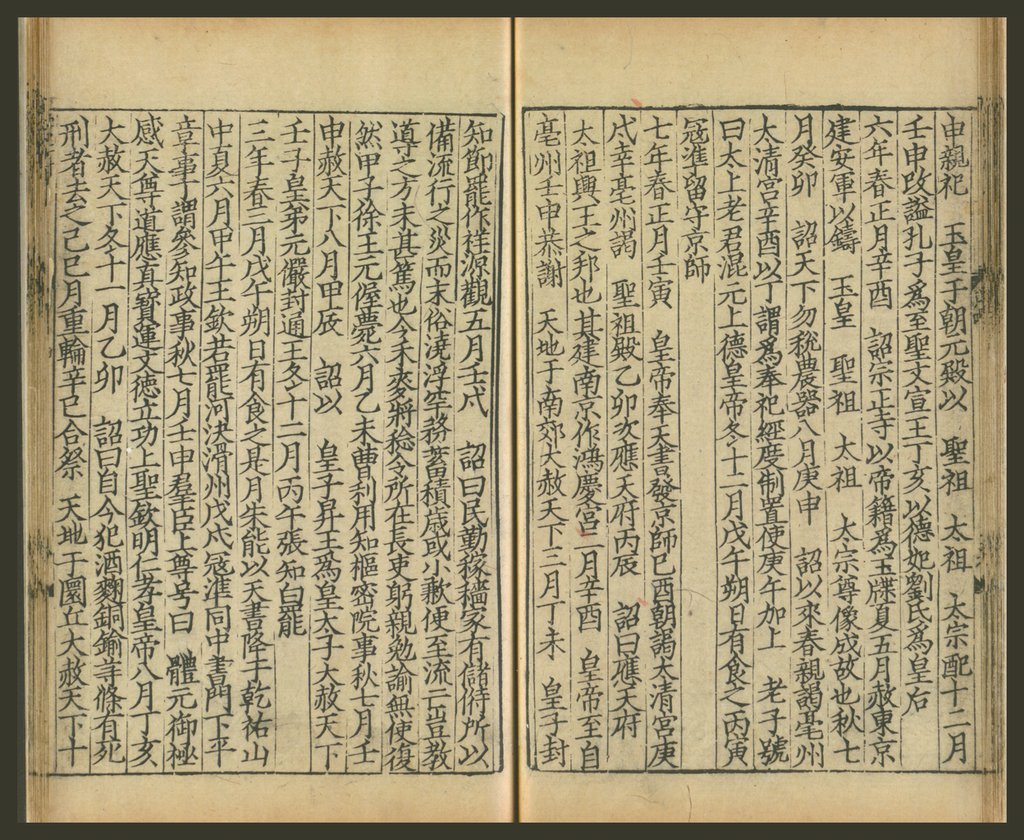 申親祀　玉皇于朝元殿以　聖祖　太祖　太宗配十二月
壬申改謚孔子爲至聖文宣王丁亥以德妃劉氏爲皇后
六年春正月辛酉　詔宗正寺以帝籍爲玉牒夏五月赦東京
建安軍以鑄　玉皇　聖祖　太祖　太宗尊像成故也秋七
月癸卯　詔天下勿稅農器八月庚申　詔以來春親謁亳州
太清宮辛酉以丁謂爲奉祀經度制置使庚午加上　老子號
曰太上老君混元上德皇帝冬十二月戊午朔日有食之丙寅
冦準留守京師
七年春正月壬寅　皇帝奉天書發京師己酉朝謁太清宮庚
戌幸亳州謁　聖祖殿乙卯次應天府丙辰　詔曰應天府
太祖興王之邦也其建南京作鴻慶宮二月辛酉　皇帝至自
亳州壬申恭謝　天地于南郊大赦天下三月丁未　皇子封
知節罷作祥源觀五月壬戌　詔曰民勤稼穡家有儲偫所以
備流行之災而末俗澆浮罕務蓄積歲或小歉便至流亡豈教
導之方未甚篤也今禾麥將稔令所在長吏躬親勉諭無使復
然甲子徐王元偓薨六月乙未曹利用知樞密院事秋七月壬
申赦天下八月甲辰　詔以　皇子昇王爲皇太子大赦天下
壬子皇弟元儼封通王冬十二月丙午張知白罷
三年春三月戊午朔日有食之是月朱能以天書降于乾祐山
中夏六月甲午王欽若罷河決滑州戊戌冦準同中書門下平
章事丁謂參知政事秋七月壬申羣臣上尊号曰　體元御極
感天尊道應真寶運文德立功上聖欽明仁孝皇帝八月丁亥
大赦天下冬十一月乙卯　詔曰自今犯酒麴銅鍮等條有死
刑者去之己巳月重輪辛巳合祭　天地于圜丘大赦天下十